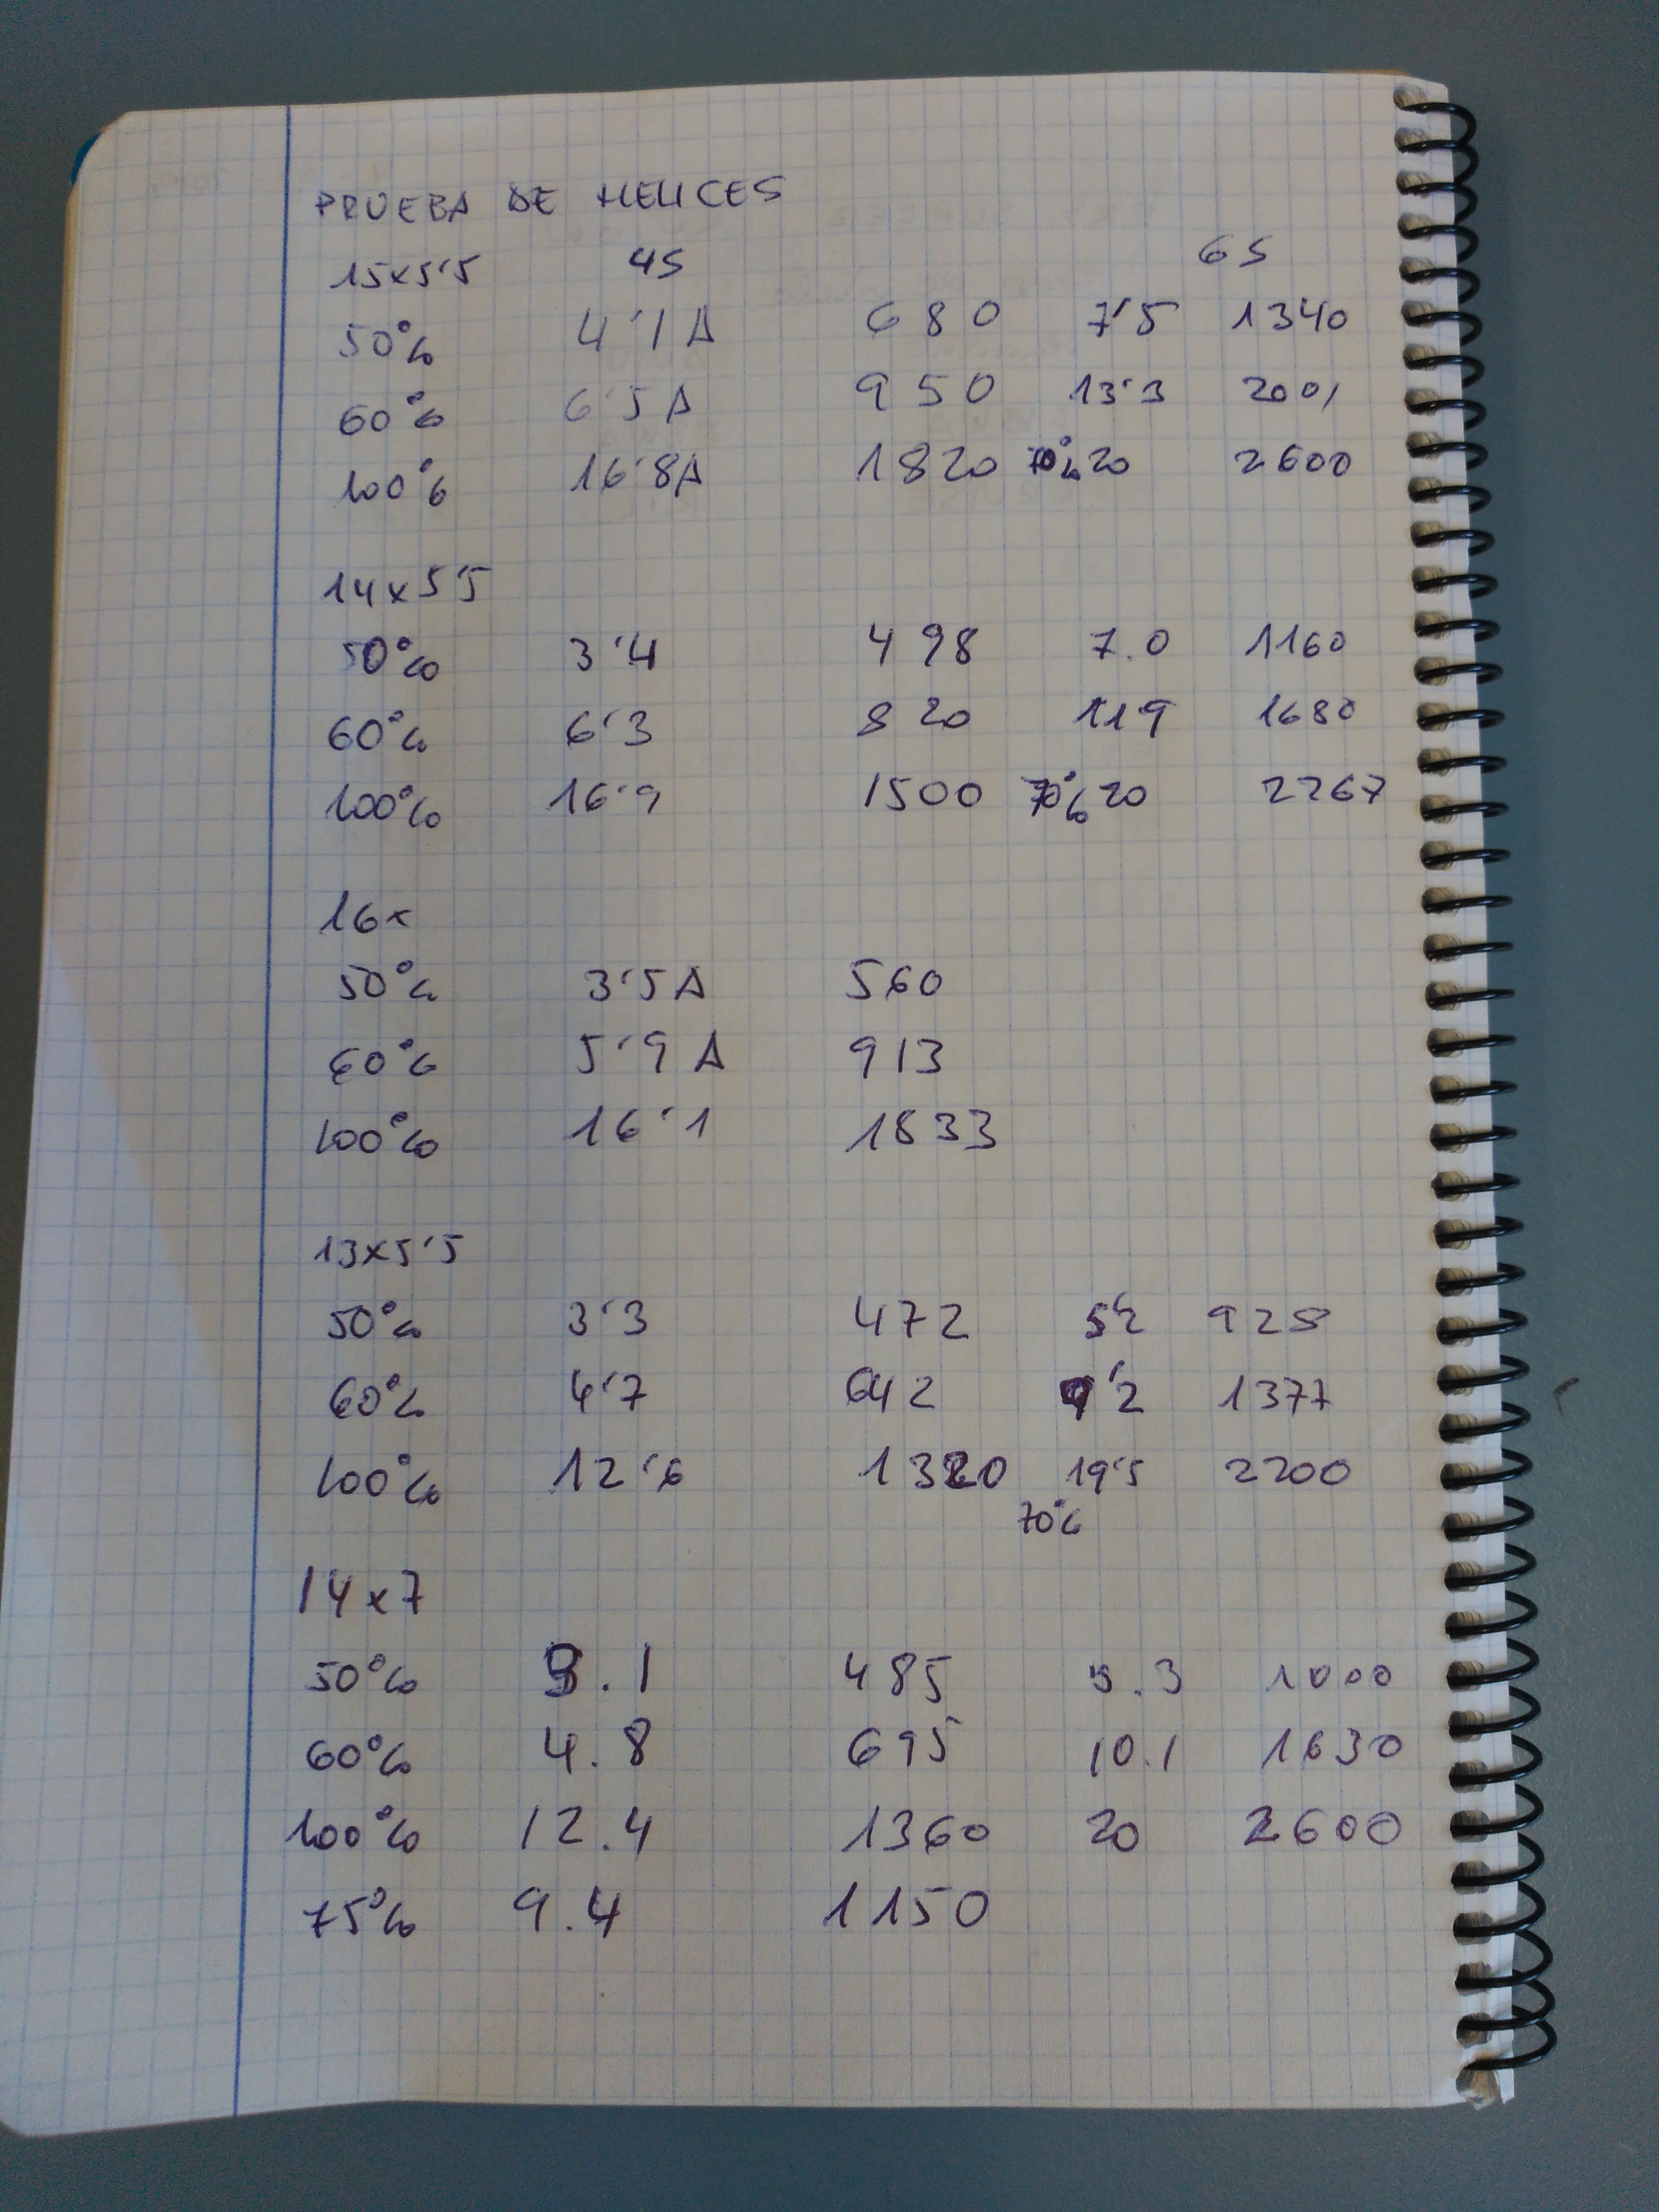 PRUEBA DE HELICES
15x5'5 4S 6S
50% 4'1A 680 7'5 1340
60% 6'5A 950 13'3 2001
100% 16'8A 1820 70% 20 2600
14x5'5
50% 3'4 498 7.0 1160
60% 6'3 820 11'9 1680
100% 16'9 1500 70% 20 2267
16x
50% 3'5A 560
60% 5'9A 913
100% 16'1 1833
13x5'5
50% 3'3 472 5'2 928
60% 4'7 642 9'2 1377
100% 12'6 1320 19'5 2200
70%
14x7
50% 3.1 485 5.3 1000
60% 4.8 695 10.1 1630
100% 12.4 1360 20 2600
75% 9.4 1150